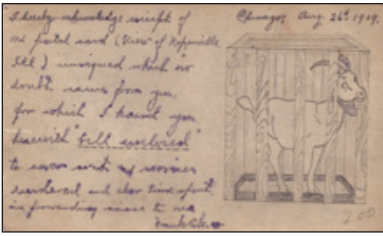 I hereby acknowledge receipt of
one postal card (View of Naperville,
Ill.) unsigned which no
doubt came from you,
for which I hand you
herewith "bill enclosed"
to cover cost of services
rendered and also time spent
in forwarding same to me
Chicago, Aug. 26th 1909.
200